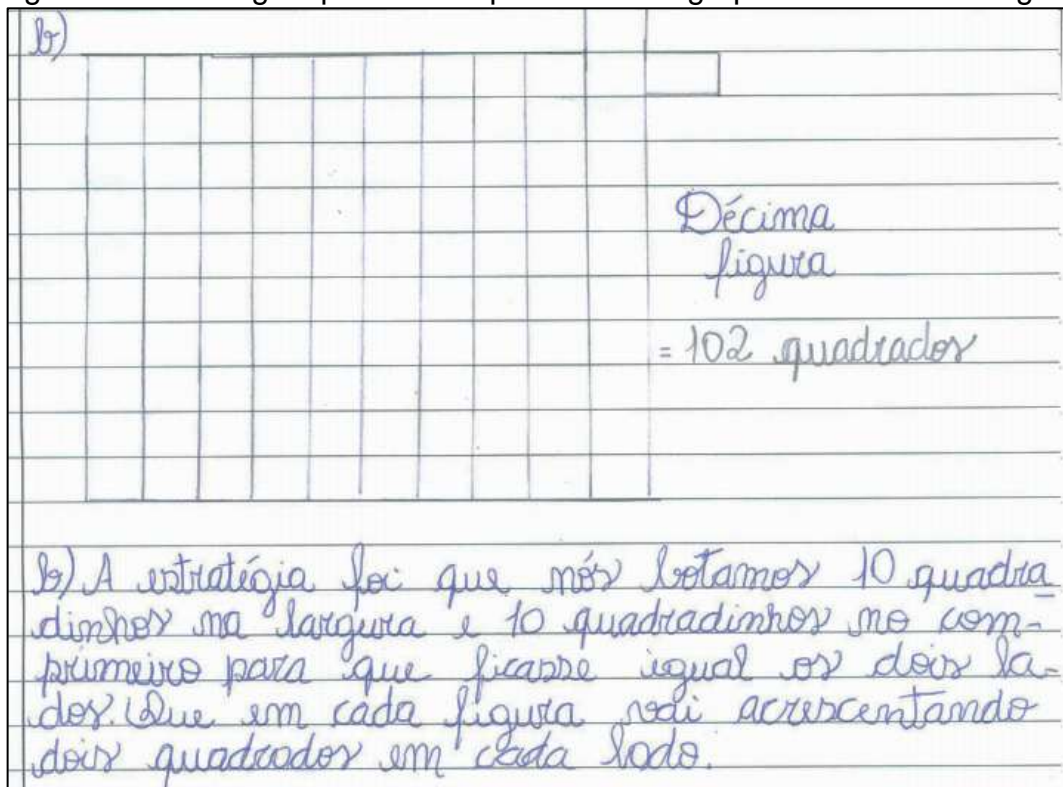 b)
Décima
figura
= 102 quadrados
b) A estratégia foi que nós botamos 10 quadra
dinhos na largura e 10 quadradinhos no com-
primeiro para que ficasse igual os dois la-
dos. Que em cada figura vai acrescentando
dois quadrados em cada lado.